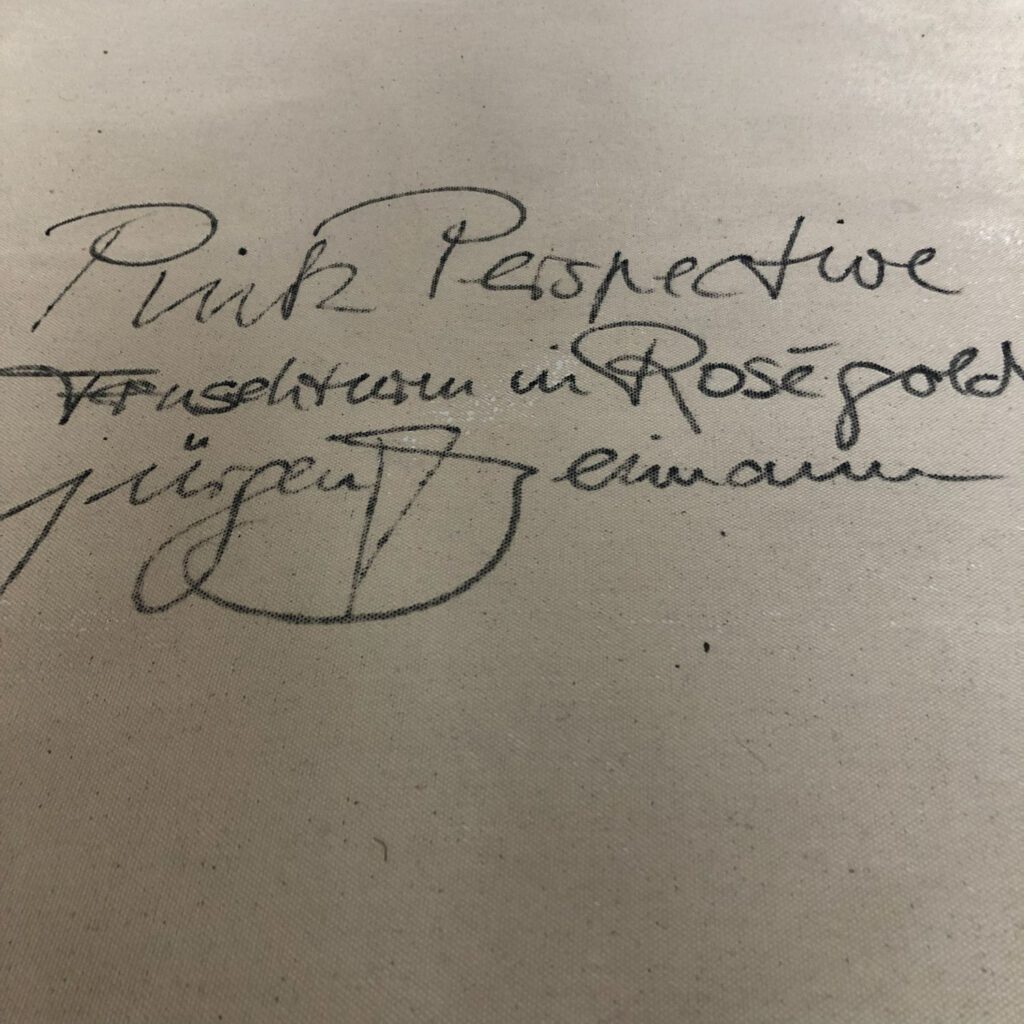 Pink Perspective
Fernsehturm in Roségold
Jürgen Deimann